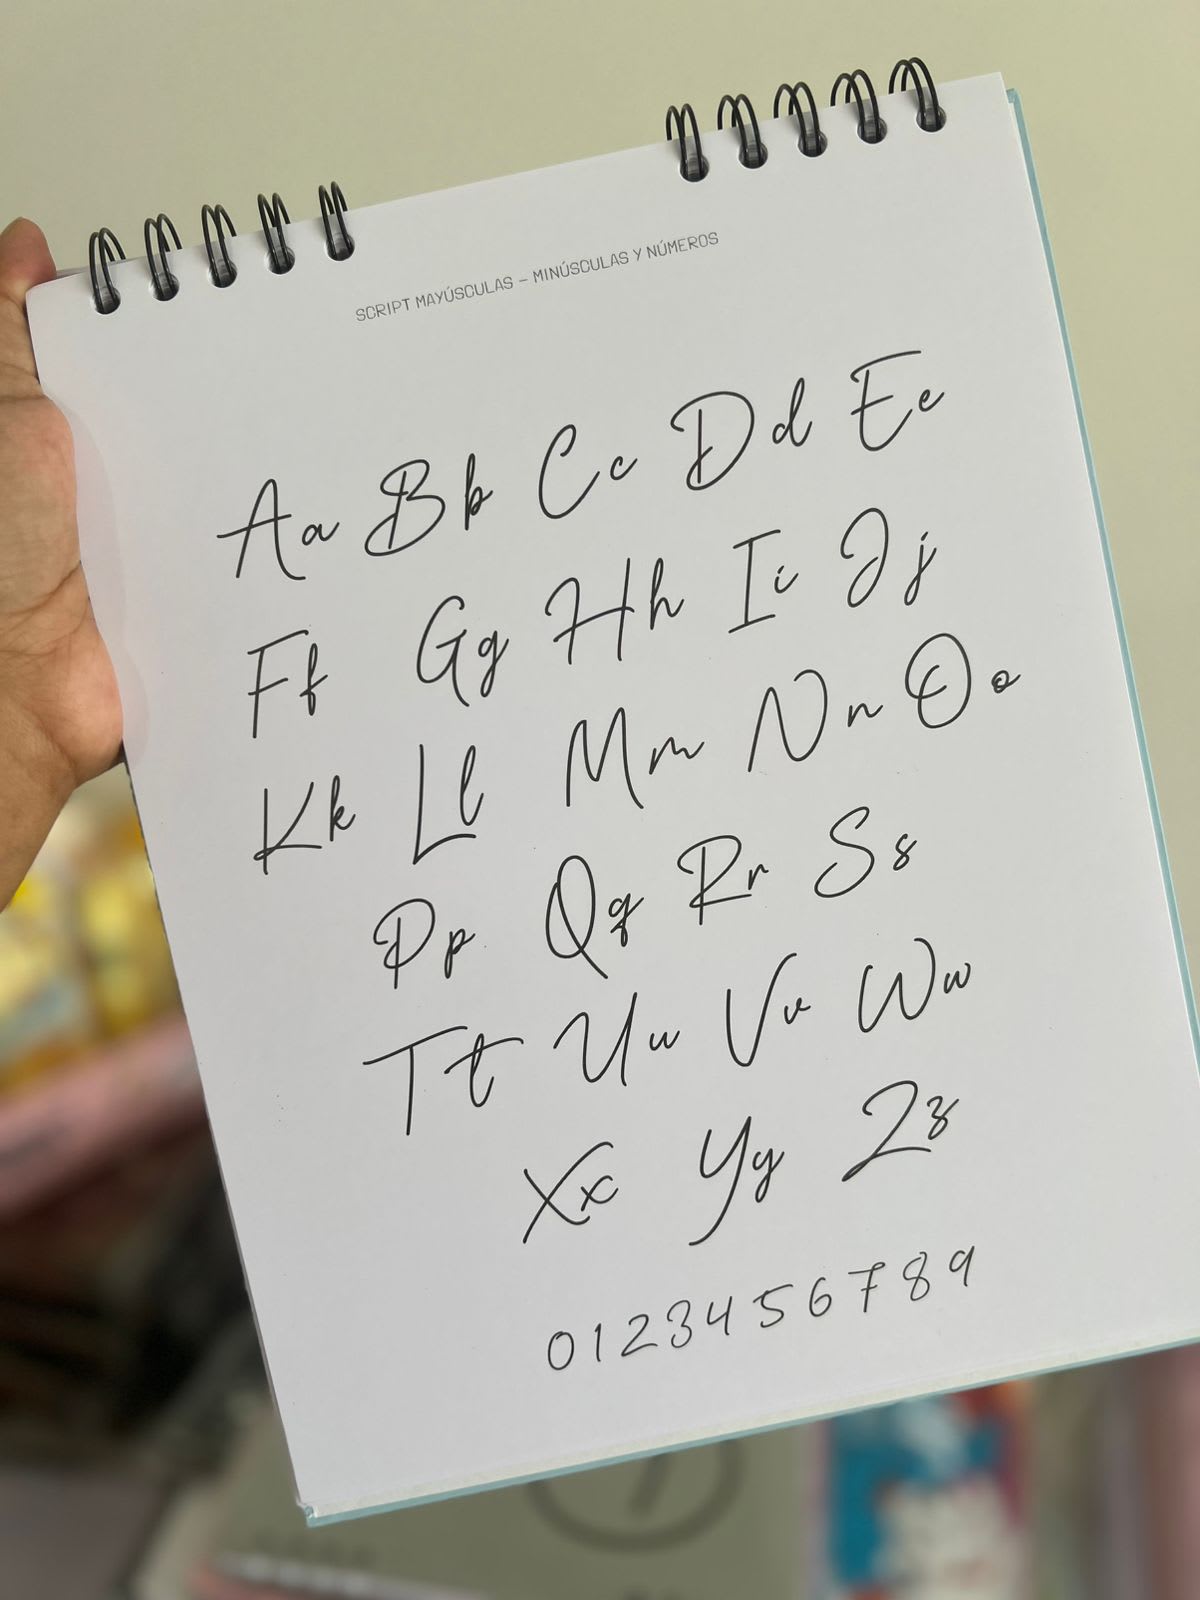 SCRIPT MAYÚSCULAS – MINÚSCULAS Y NÚMEROS
Aa Bb Cc Dd Ee
Ff Gg Hh Ii Jj
Kk Ll Mm Nn Oo
Pp Qq Rr Ss
Tt Uu Vv Ww
Xx Yy Zz
0 1 2 3 4 5 6 7 8 9